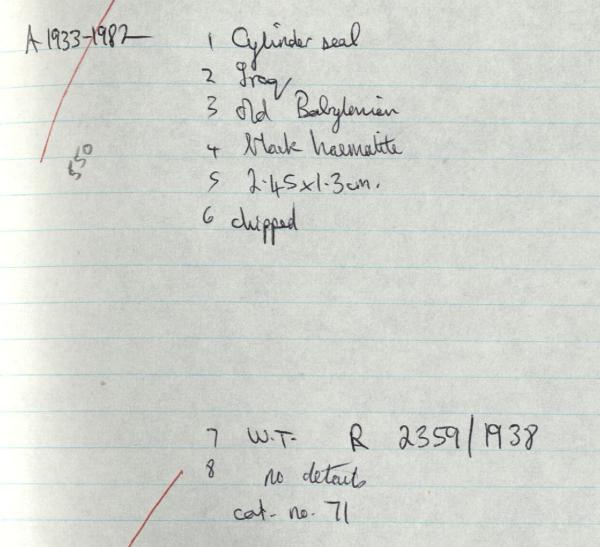 A 1933-1982
1 Cylinder seal
2 Iraq
3 old Babylonian
4 black haematite
550
5 2.45x1.3cm.
6 chipped
7 W.T. R 2359/1938
8 no details
cat. no. 71